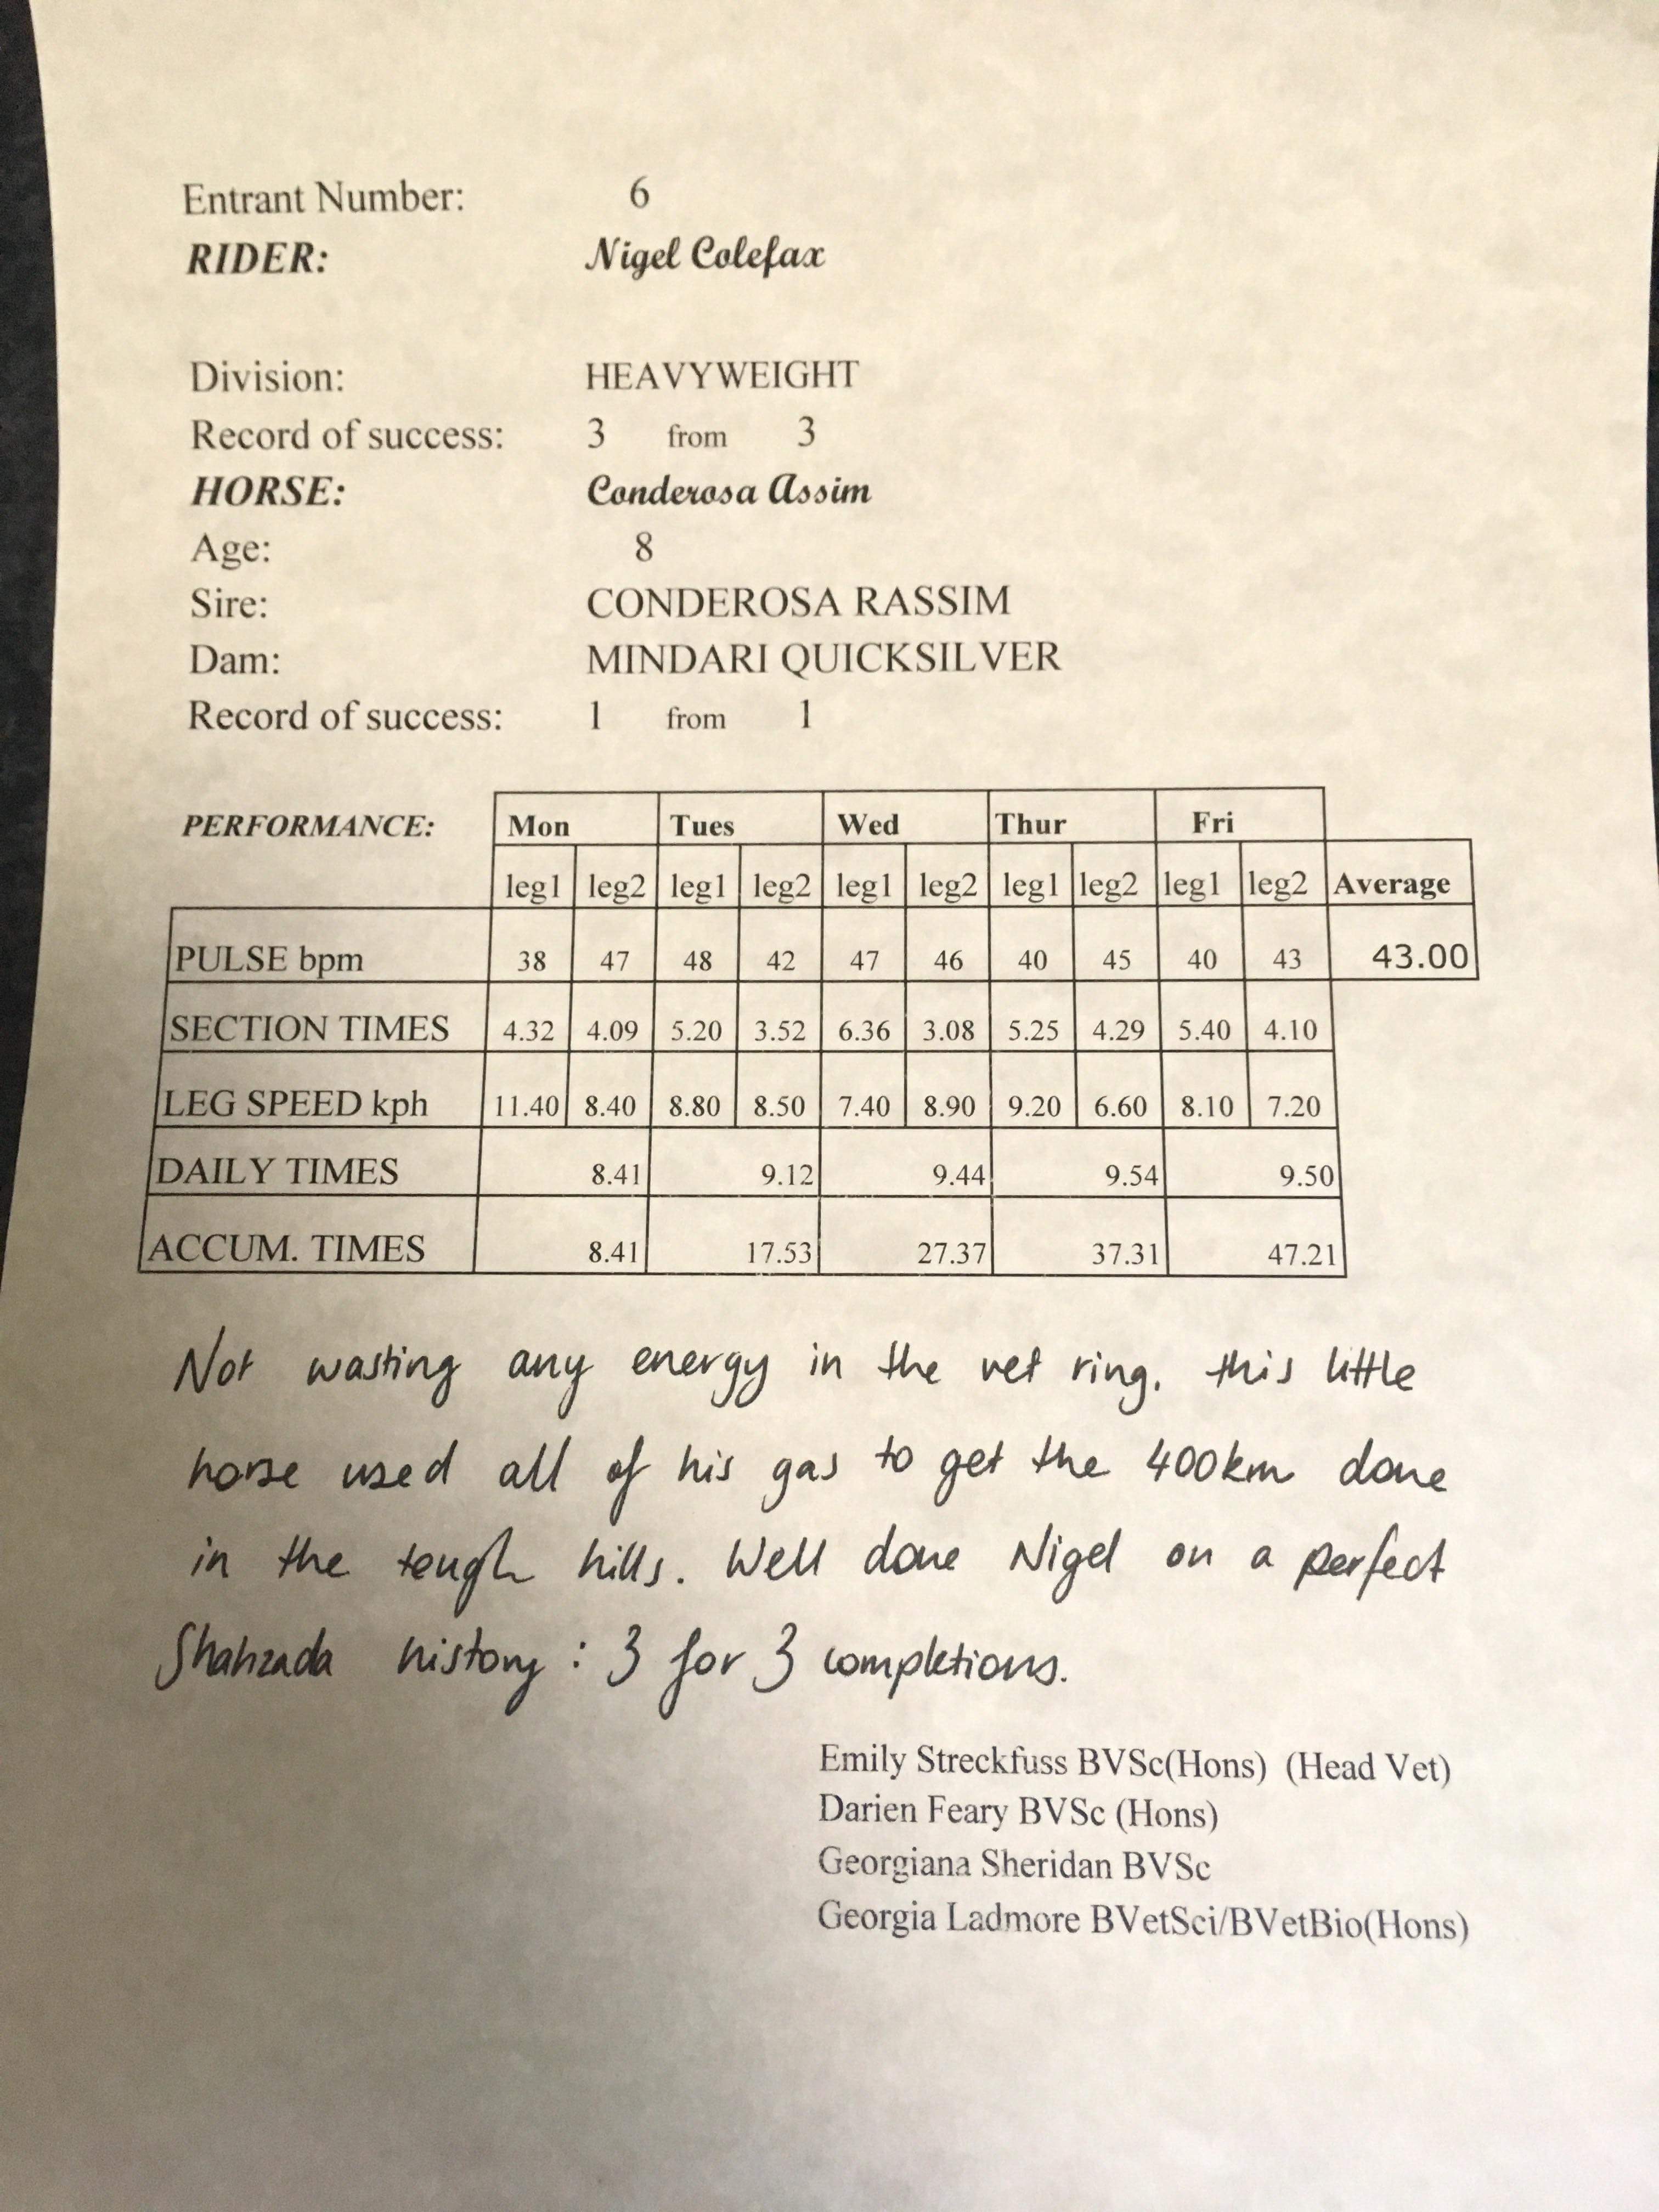 Entrant Number: 6
RIDER: Nigel Colefax
Division: HEAVYWEIGHT
Record of success: 3 from 3
HORSE: Conderosa Assim
Age: 8
Sire: CONDEROSA RASSIM
Dam: MINDARI QUICKSILVER
Record of success: 1 from 1
PERFORMANCE: Mon Tues Wed Thur Fri
leg1 leg2 leg1 leg2 leg1 leg2 leg1 leg2 leg1 leg2 Average
PULSE bpm 38 47 48 42 47 46 40 45 40 43 43.00
SECTION TIMES 4.32 4.09 5.20 3.52 6.36 3.08 5.25 4.29 5.40 4.10
LEG SPEED kph 11.40 8.40 8.80 8.50 7.40 8.90 9.20 6.60 8.10 7.20
DAILY TIMES 8.41 9.12 9.44 9.54 9.50
ACCUM. TIMES 8.41 17.53 27.37 37.31 47.21
Not wasting any energy in the vet ring, this little
horse used all of his gas to get the 400km done
in the tough hills. Well done Nigel on a perfect
Shahzada history : 3 for 3 completions.
Emily Streckfuss BVSc(Hons) (Head Vet)
Darien Feary BVSc (Hons)
Georgiana Sheridan BVSc
Georgia Ladmore BVetSci/BVetBio(Hons)